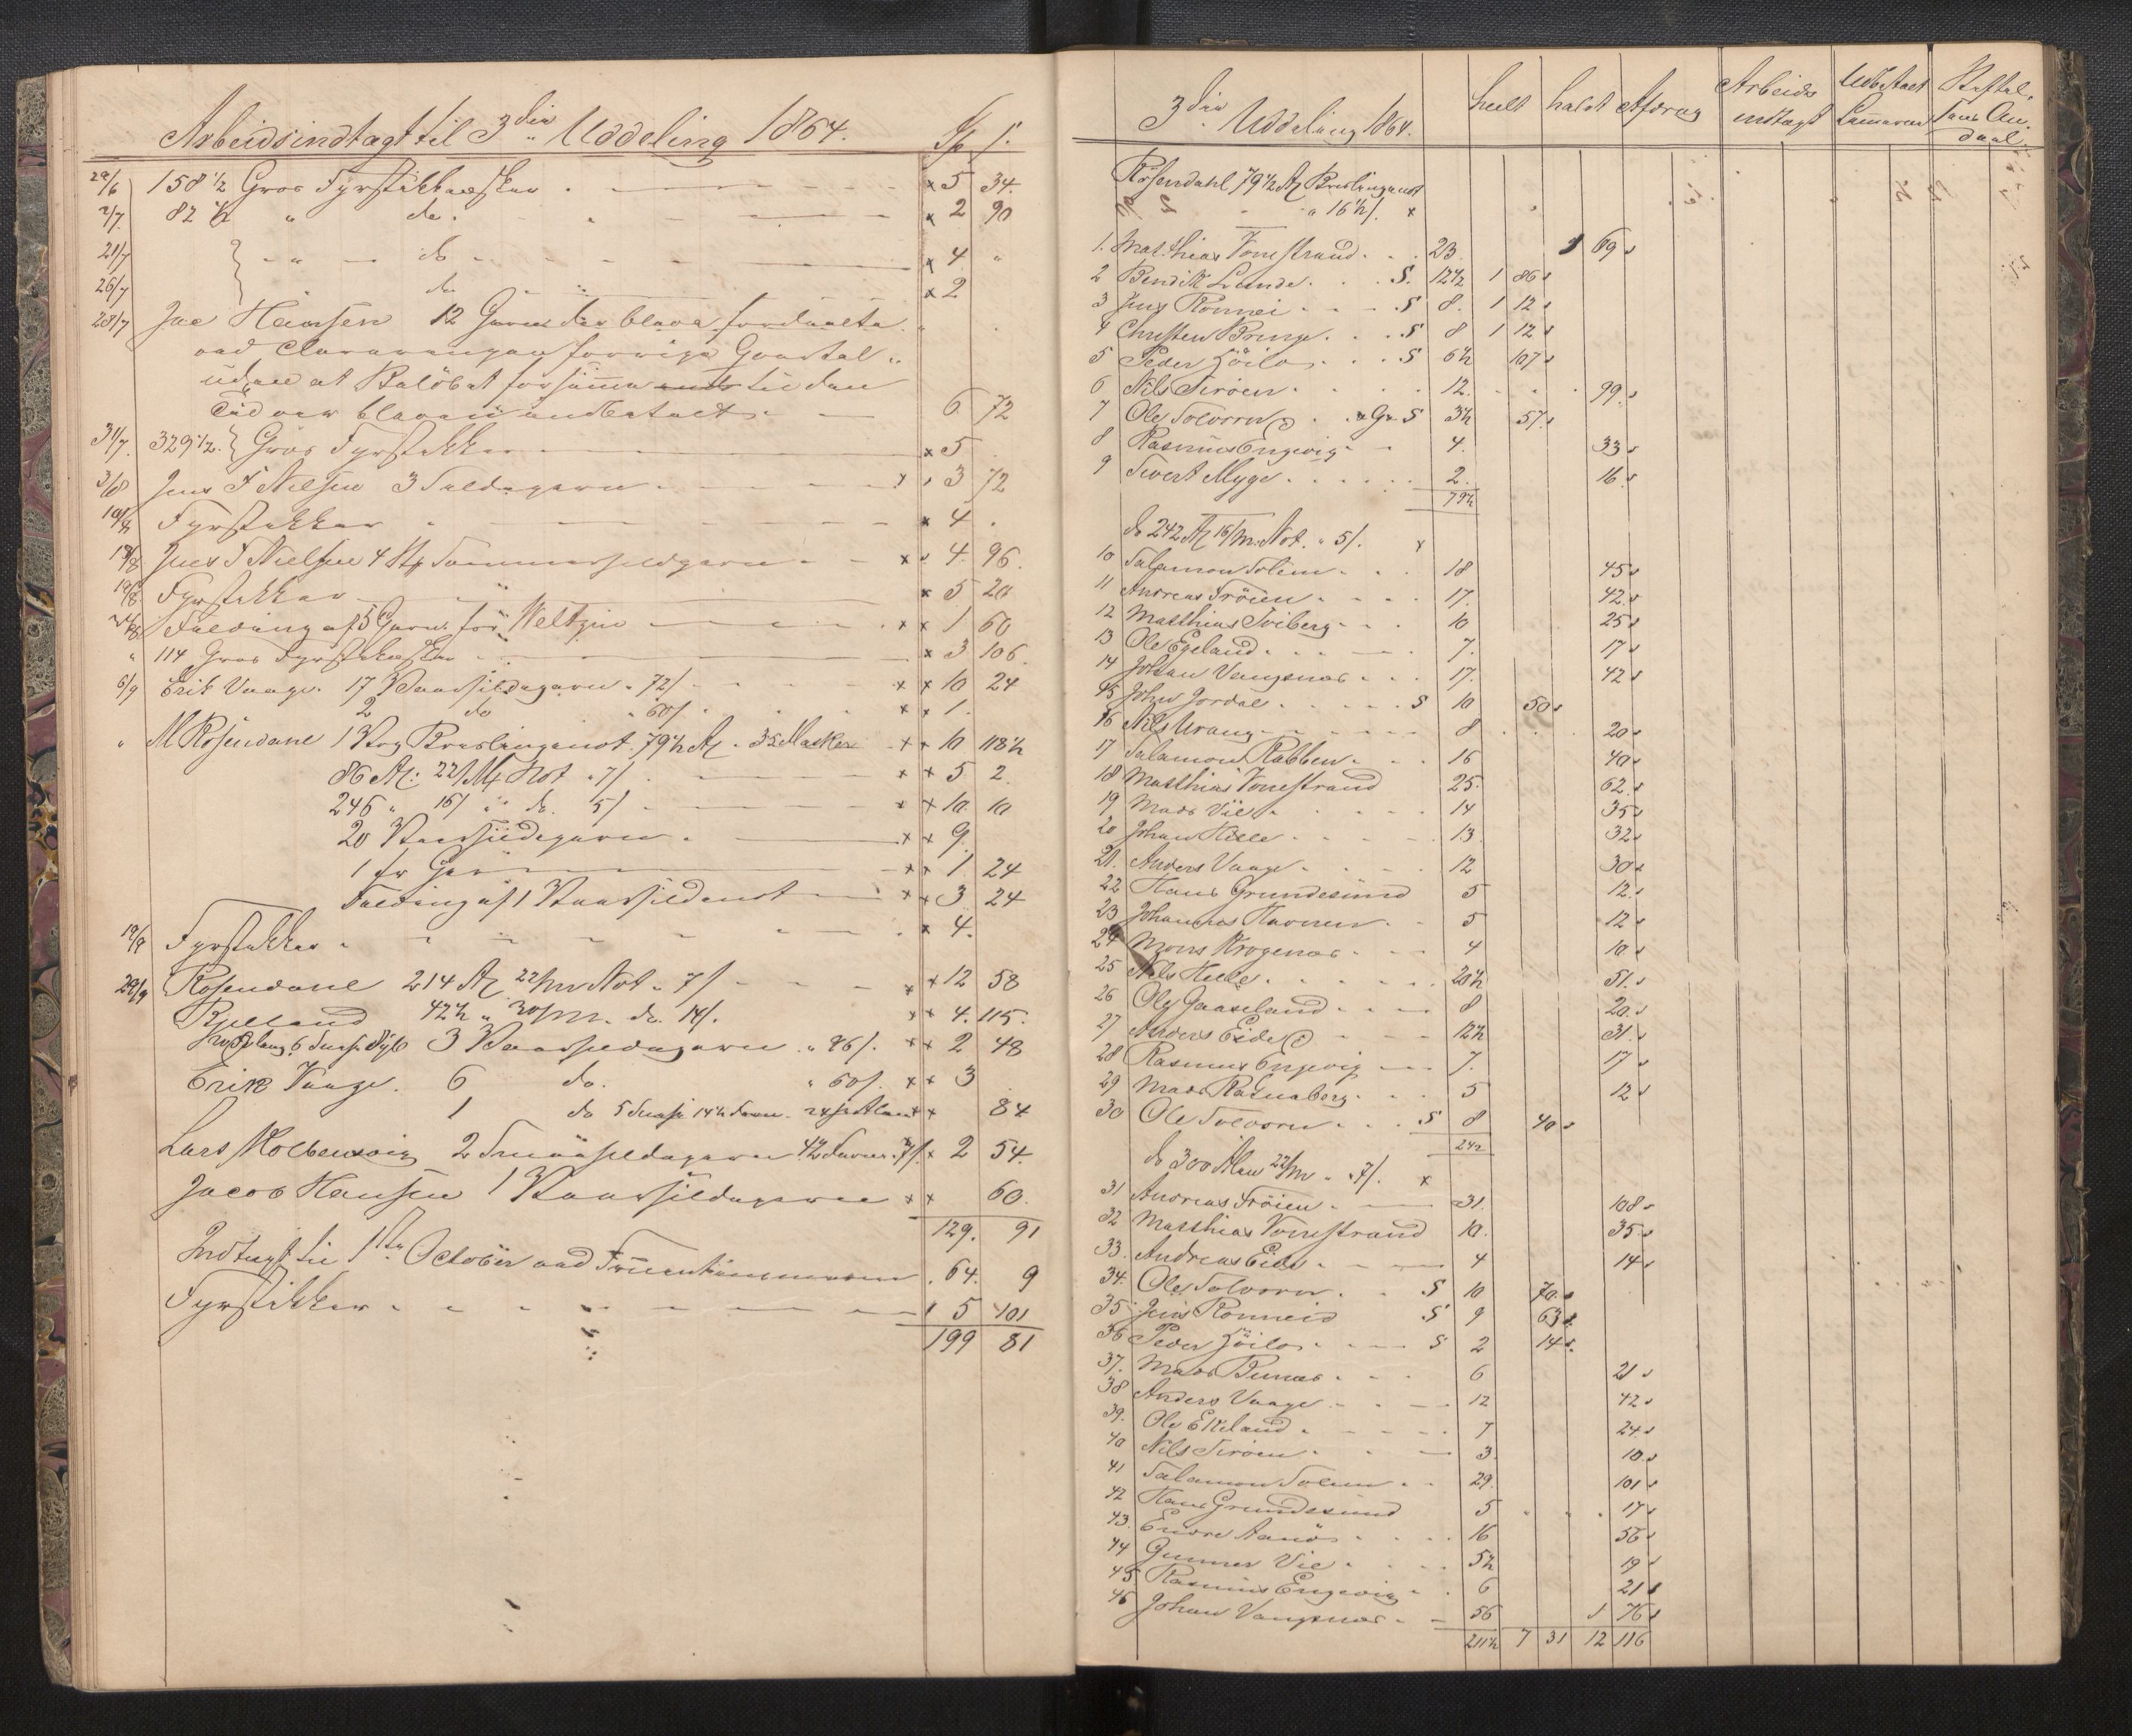 Arbeidsindtægt til 3die Uddeling 1864. Sp s.
29/6 158 1/2 Gros Fyrstikkæsker . x 5 34.
2/7. 82 1/2 " do. x 2 90
21/7 " do x 4 "
26/7 do " x 2
28/7 Jac Hansen 12 Garn der bleve
forrige Qvartal
uden at Beløbet til den
Tid var bleven indbetalt 6 72
31/7. 329 1/2. Gros Fyrstikker x 5
3/8 Jens F Nielsen 3 Sildegarn x 3 72
10/8 Fyrstikker x 4 .
13/8 Jens F Nielsen 4 St Sommersildgarn x 4. 96.
19/8 Fyrstikker x 5 20
24/8 Fældning af 5 Garn for Weltzin x x 1 60
" 114 Gros Fyrstikæsker x 3 106.
6/9 Erik Vaage. 17 Vaarsildegarn " 72/ x x 10 24
2 do " 60/. x x 1.
" M Rosendahl 1 Brislingenot. 79 1/2 Al. 35 Masker x x 10 118 1/2
86 Al: 22/M Not " 7/ x x 5 2.
246 " 16/ " do. 5/ x x 10. 10
20 Vaarsildegarn. x x 9.
1 x x 1. 24
Fældning af 1 Vaarsildenot x x 3 24
19/9 Fyrstikker. x 4.
29/9 Rosendahl 214 Al 22/m Not " 7/ x x 12 58
Kjelland 42 1/2 " 30/m. do. 14/. x x 4. 115.
3 Vaarsildegarn " 86/. x x 2 48
Erik Vaage. 6 do. " 60/. x x 3
1 do x x 84
Lars 2 Smaasildegarn x 2 54.
Jacob Hansen 1 Vaarsildegarn x x 60.
129. 91
Indtægt til 1ste October ved 64. 9
Fyrstikker 5 101
199 81
3die Uddeling 1864. heelt halvt Afdrag Arbeids indtægt Udbetalt
Rosendahl 79 1/2 Al Brislingenot
" 16 1/2/. x
1. Matthias Vonestrand 23. 1 69
2 Bendik Leende S. 12 1/2 1 86
3 Jens Rønnei S 8. 1 12
4 Christen Pringe S 8 1 12
5 Peder S 6 1/2 107
6 Nils 12. 99.
7 Ole Solvorn S 3 1/2 57.
8 Rasmus Engevig 4. 33
9 Sivert Myge 2. 16.
79 1/2
do 242 Al 16/m. Not. " 5/. x
10 Salamon Solem 18 45
11 Andreas Frøien 17. 42
12 Matthias Sviberg 10 25
13 Ole Egeland 7. 17
14 Johan Vangsnæs 17. 42
15 John Jordal S 10 50
16 Nils Urang 8 20
17 Salamon Rabben 16 40
18 Matthias Vonestrand 25. 62.
19 Mads Vie 14 35
20 Johan Hille 13. 32
21. Anders Vaage 12 30
22 Hans Grundesund 5 12.
23 Johannes Havnen 5 12
24 Mons Krogenæs 4 10
25 Nils Hille 20 1/2 51.
26 Ole Gaaseland 8 20.
27 Anders Eide 12 1/2 31.
28 Rasmus Engevig 7. 17
29 Mads 5 12
30 Ole Solvorn S 8 40
242
do 300 Alen 22/m " 7/. x
31 Andreas Frøien 31. 108
32 Matthias Vonestrand 10. 35.
33. Andreas Eide 4 14
34. Ole Solvorn S 10 70.
35 Jens Rønneid S 9 63
36 Peder S 2 14
37. Mads 6 21
38 Anders Vaage 12 42
39. Ole Ekeland 7 24
40 Nils 3 10
41 Salamon Solem 29. 101
42 Hans Grundesund 5 17
43. Endre 16 56
44 Gunner Vie 5 1/2 19
45 Rasmus Engevig 6 21
46 Johan Vangsnæs 56 1 76
211 1/2 7 31 12 116